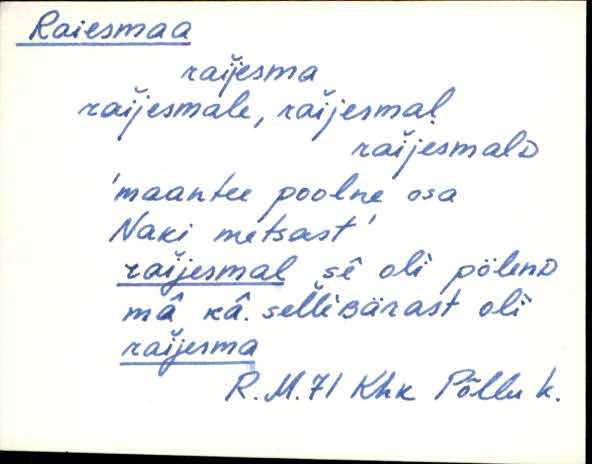 Raiesmaa
raĭjesma
raĭjesmale, raĭjesmal
raĭjesmalᴅ
'maantee poolne osa
Naki metsast'
raĭjesmal sê oli pölenᴅ
mâ kâ. selliʙärast oli
raĭjesma
R.M.71 Khk Põllu k.